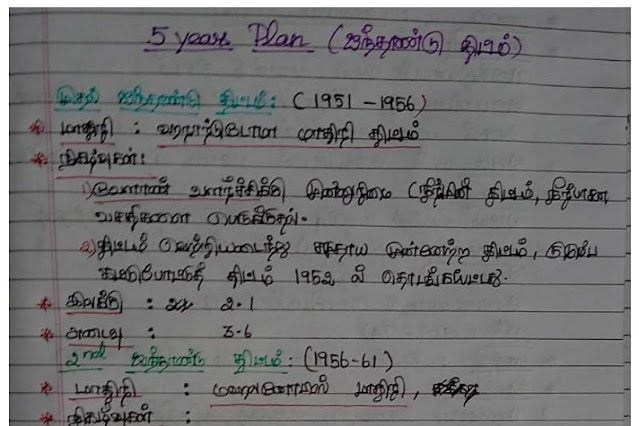 5 year Plan (ஐந்தாண்டு திட்டம்)
முதல் ஐந்தாண்டு திட்டம் : (1951 - 1956)
* மாதிரி : ஹரராட்டுடோமர் மாதிரி திட்டம்
* நிகழ்வுகள் :
1) வேளாண் வளர்ச்சிக்கு முன்னுரிமை (நீர்மின் திட்டம், நீர்பாசன
வசதிகளை பெருக்குதல்.
2) திட்டம் வெற்றியடைந்து சமுதாய முன்னேற்ற திட்டம், குடும்ப
கட்டுபோட்டுத் திட்டம் 1952 ல் தொடங்கப்பட்டது.
* இலக்கு : 2.1
* அடைவு : 3.6
2nd ஐந்தாண்டு திட்டம் : (1956-61)
* மாதிரி : மஹலனோபிஸ் மாதிரி,
* நிகழ்வுகள் :